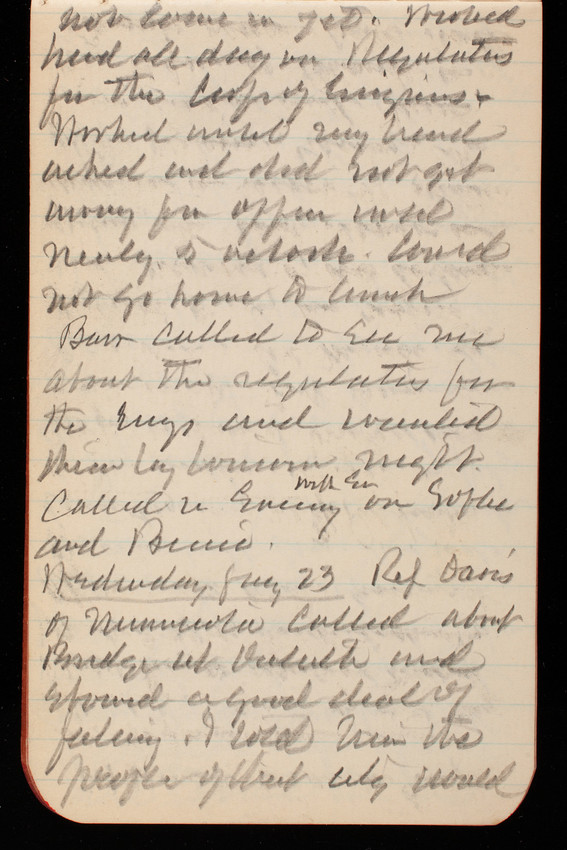 not come in yet. Worked
hard all day on Regulations
for the Corps of Engineers.
Worked until my head
ached and did not get
away from office until
nearly 5 o'clock. Could
not go home to lunch
Barr called to see me
about the regulations for
the Engs and wanted
them by tomorrow night.
Called in Evening with Em on Sophie
and Bessie.
Wednesday Jany 23 Rep Davis
of Minnesota called about
Bridge at Duluth and
showed a good deal of
feeling. I told him the
people of that city would